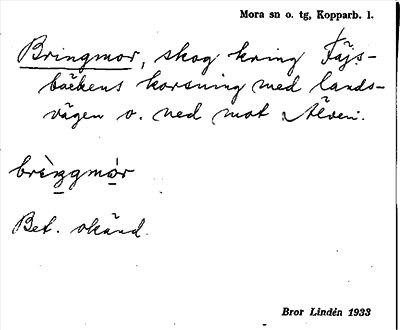 Mora sn o. tg, Kopparb. l.
Bringmor, skog kring Fäjs-
bäckens korsning med lands-
vägen o. ned mot Älven.
brìŋgmór
Bet. okänd.
Bror Lindén 1933